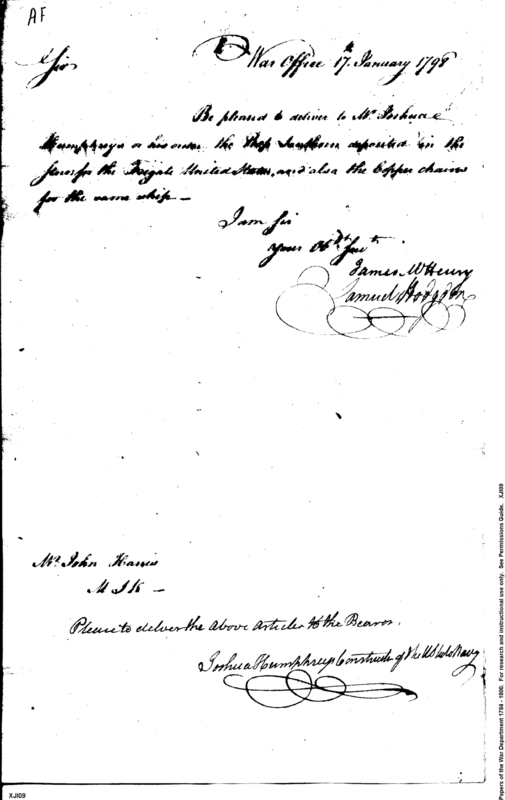 AF
War Office 17th January 1798
Sir
Be pleased to deliver to Mr. Joshua
Humphreys or his order the Lanthorn deposited in the
Stores for the Frigate United States, and also the Copper chains
for the same ship —
I am Sir
your Obt. Servt.
James McHenry
Samuel Hodgdon
Mr. John Harris
M S K —
Please to deliver the Above Articles to the Bearer.
Joshua Humphreys Constructor of the Navy
Papers of the War Department 1784 - 1800. For research and instructional use only. See Permissions Guide. XJI09
XJI09